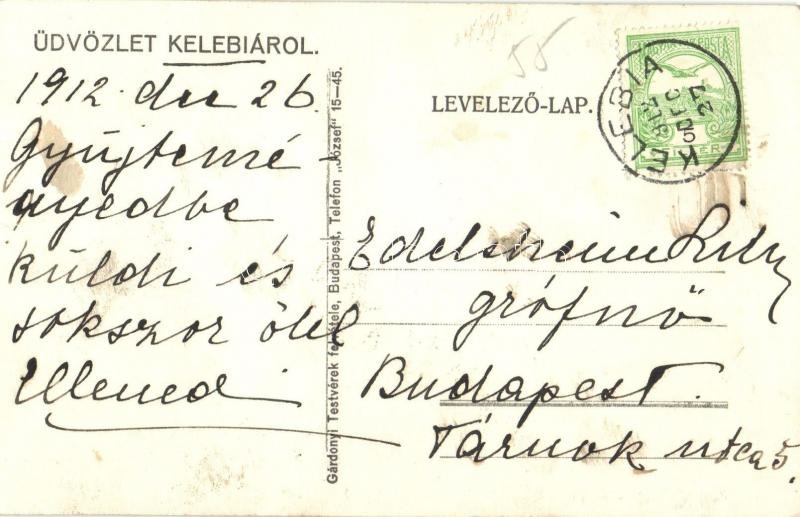 ÜDVÖZLET KELEBIÁROL.
1912. dec 26
Gyüjtemé-
nyedbe
küldi és
sokszor ölel
Gárdonyi Testvérek felvétele, Budapest, Telefon „József" 15—45.
58
LEVELEZŐ-LAP.
KELEBIA
Edelsheim Lily
grófnő
Budapest.
Tárnok utca 5.